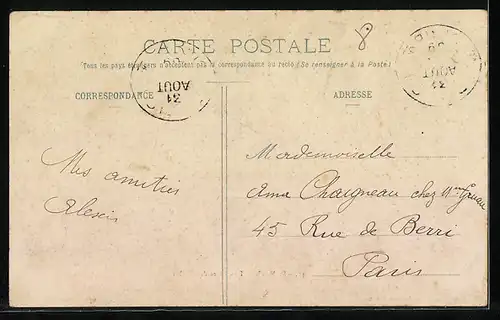 CARTE POSTALE
8
Tous les pays étrangers n'acceptent pas la correspondance au recto (Se renseigner à la Poste)
CORRESPONDANCE
ADRESSE
31
AOUT
31
AOUT
09
Mes amitiés
Alexis
Mademoiselle
Chaigneau chez Mme
45 Rue de Berri
Paris